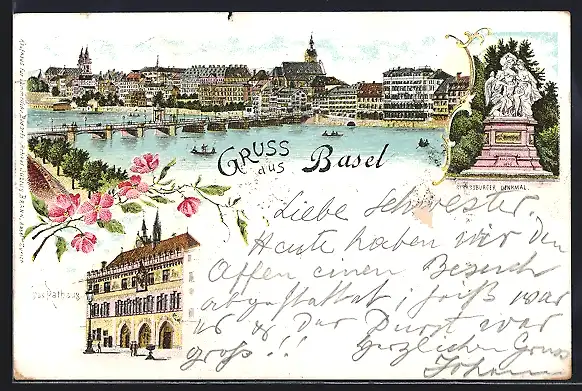 GRUSS
aus Basel
STRASSBURGER DENKMAL.
Das Rathaus
Liebe Schwester.
Heute haben wir den
Affen einen Besuch
abgestattet; heiß war
es & der Durst war
groß!! herzlichen Gruss
Johann